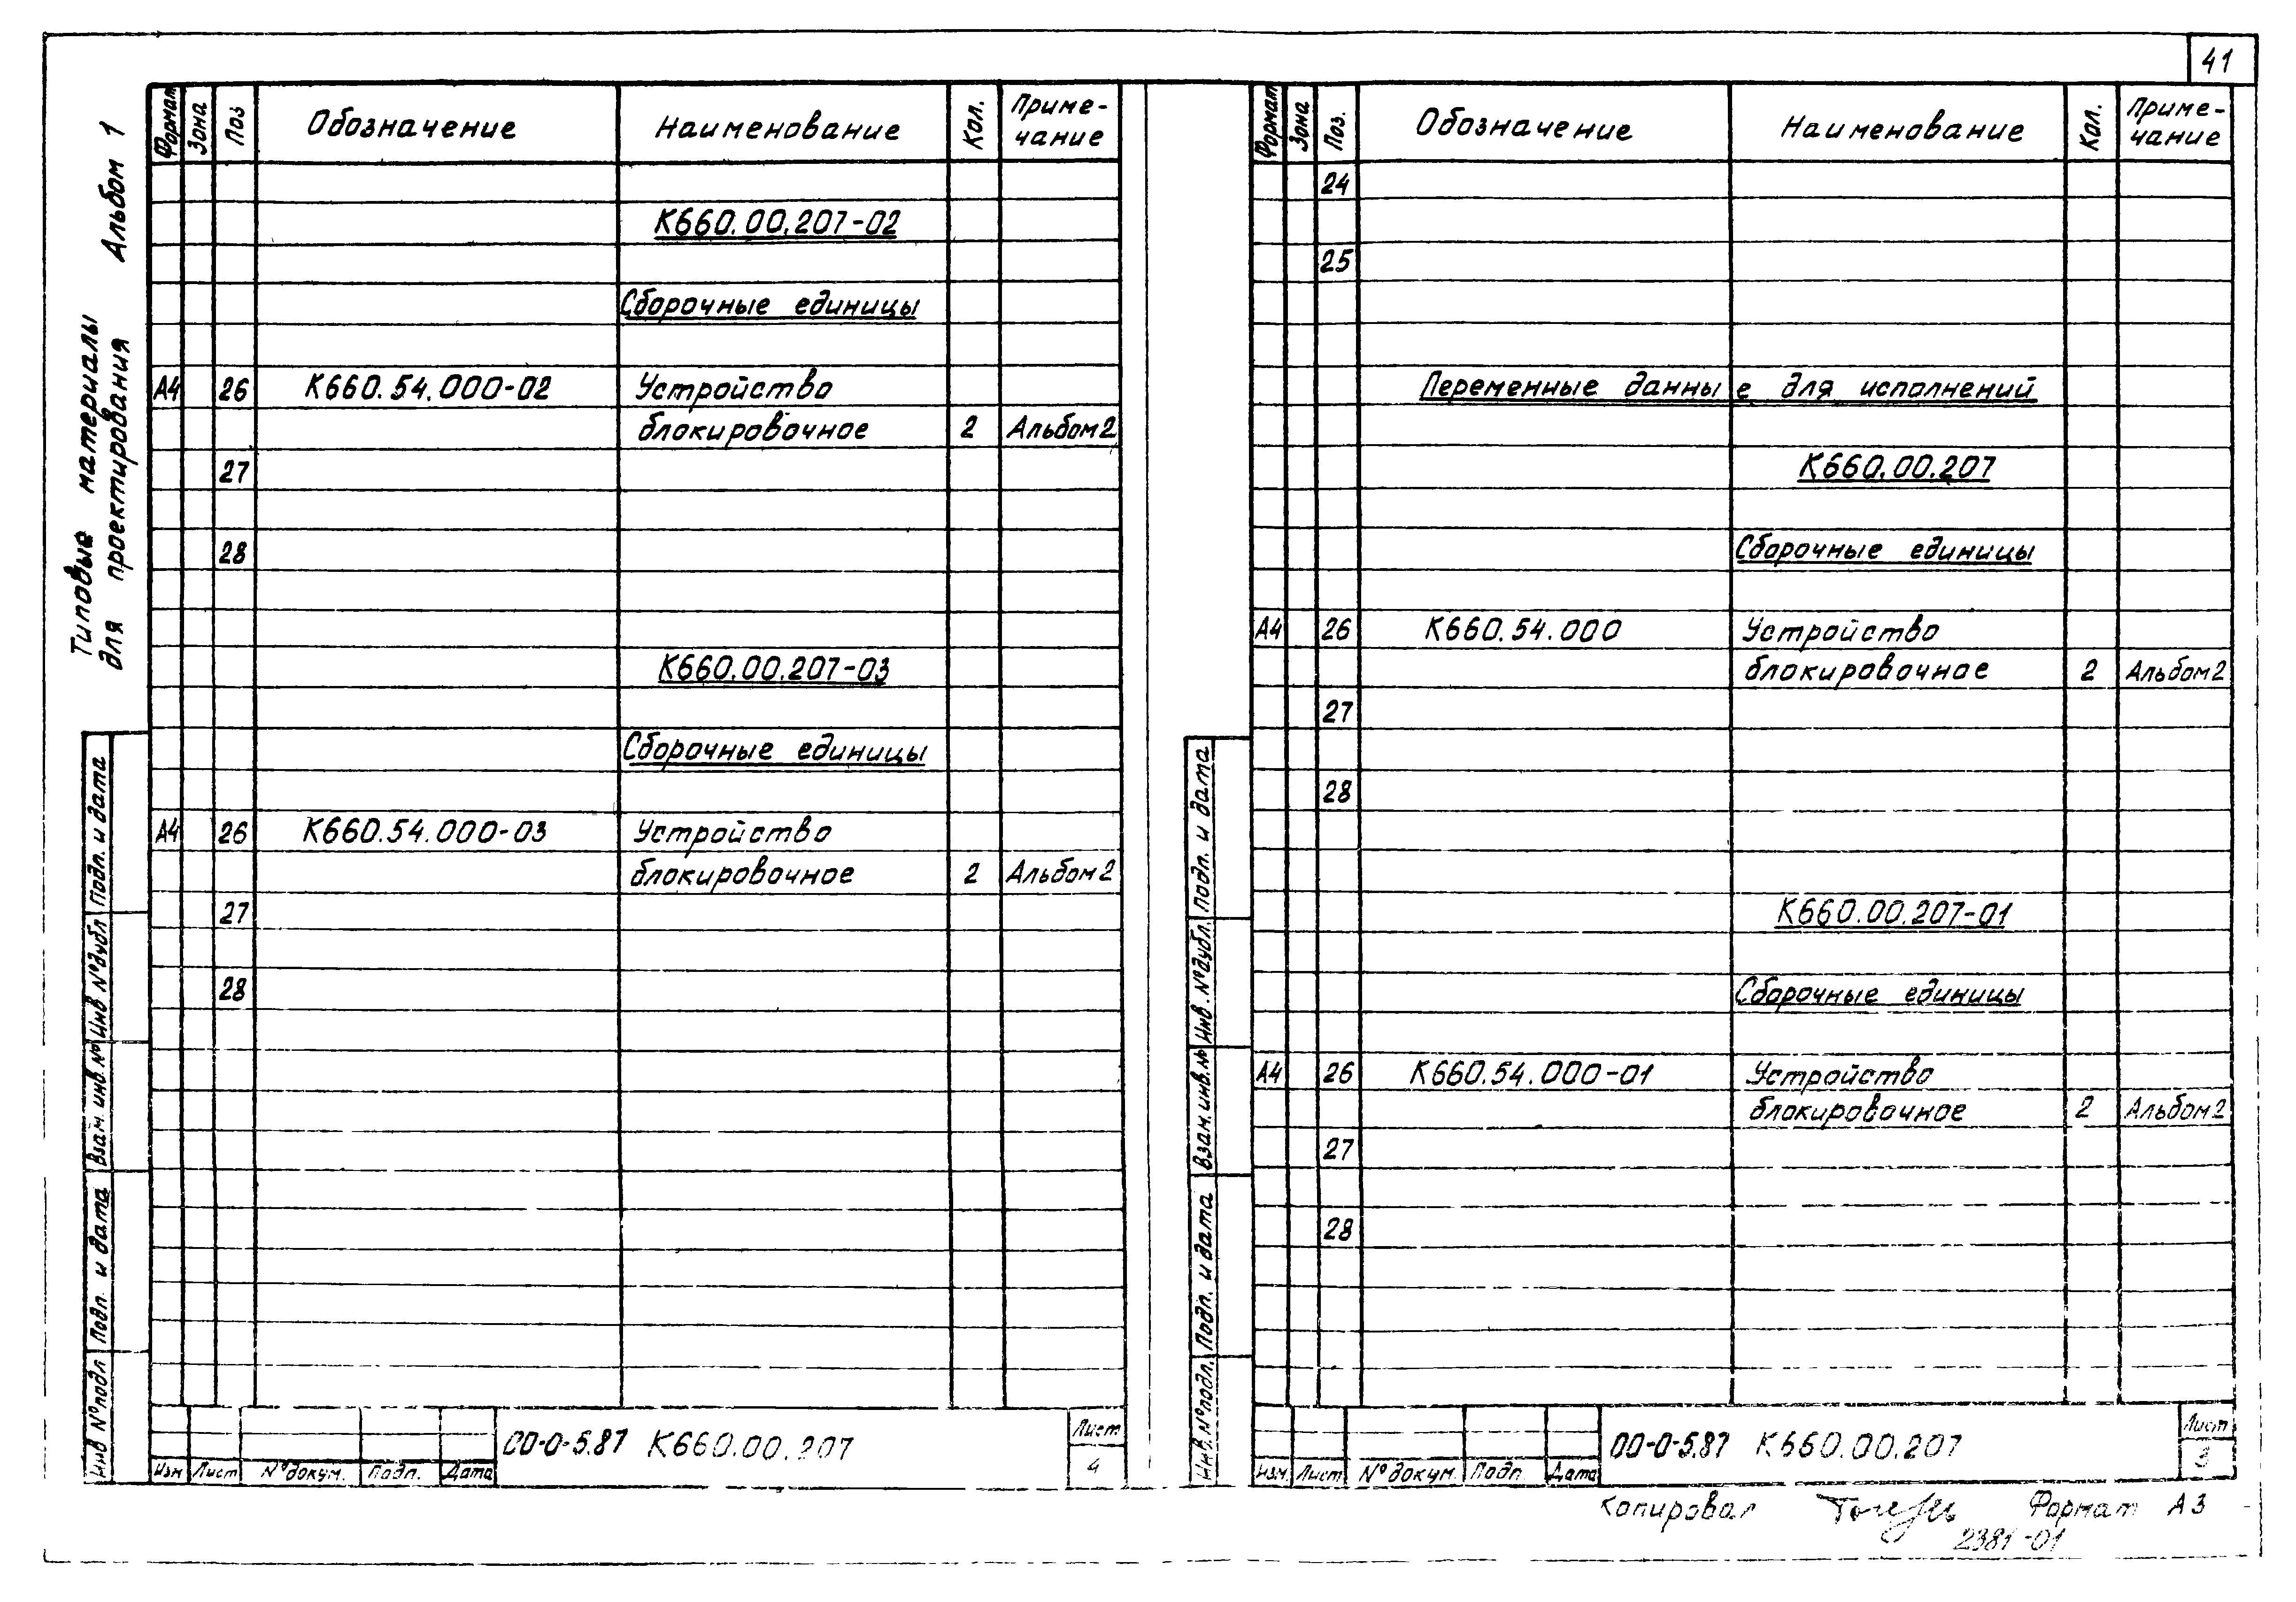 41
Типовые материалы
для проектирования
Альбом 1
Формат Зона Поз Обозначение Наименование Кол. Приме-
чание
К660.00.207-02
Сборочные единицы
А4 26 К660.54.000-02 Устройство
блокировочное 2 Альбом 2
27
28
К660.00.207-03
Сборочные единицы
А4 26 К660.54.000-03 Устройство
блокировочное 2 Альбом 2
27
28
Подп. и дата
Инв №дубл
Взам. инв.№
Подп. и дата
Инв №подл
Изм Лист №докум. Подп. Дата
00-0-5.87 К660.00.207
Лист
4
Формат Зона Поз. Обозначение Наименование Кол. Приме-
чание
24
25
Переменные данные для исполнений
К660.00.207
Сборочные единицы
А4 26 К660.54.000 Устройство
блокировочное 2 Альбом 2
27
28
К660.00.207-01
Сборочные единицы
А4 26 К660.54.000-01 Устройство
блокировочное 2 Альбом 2
27
28
Подп. и дата
Инв. №дубл.
Взам.инв.№
Подп. и дата
Инв.№подл.
Изм. Лист №докум. Подп Дата
00-0-5.87 К660.00.207
Лист
3
Копировал Формат А3
2381-01